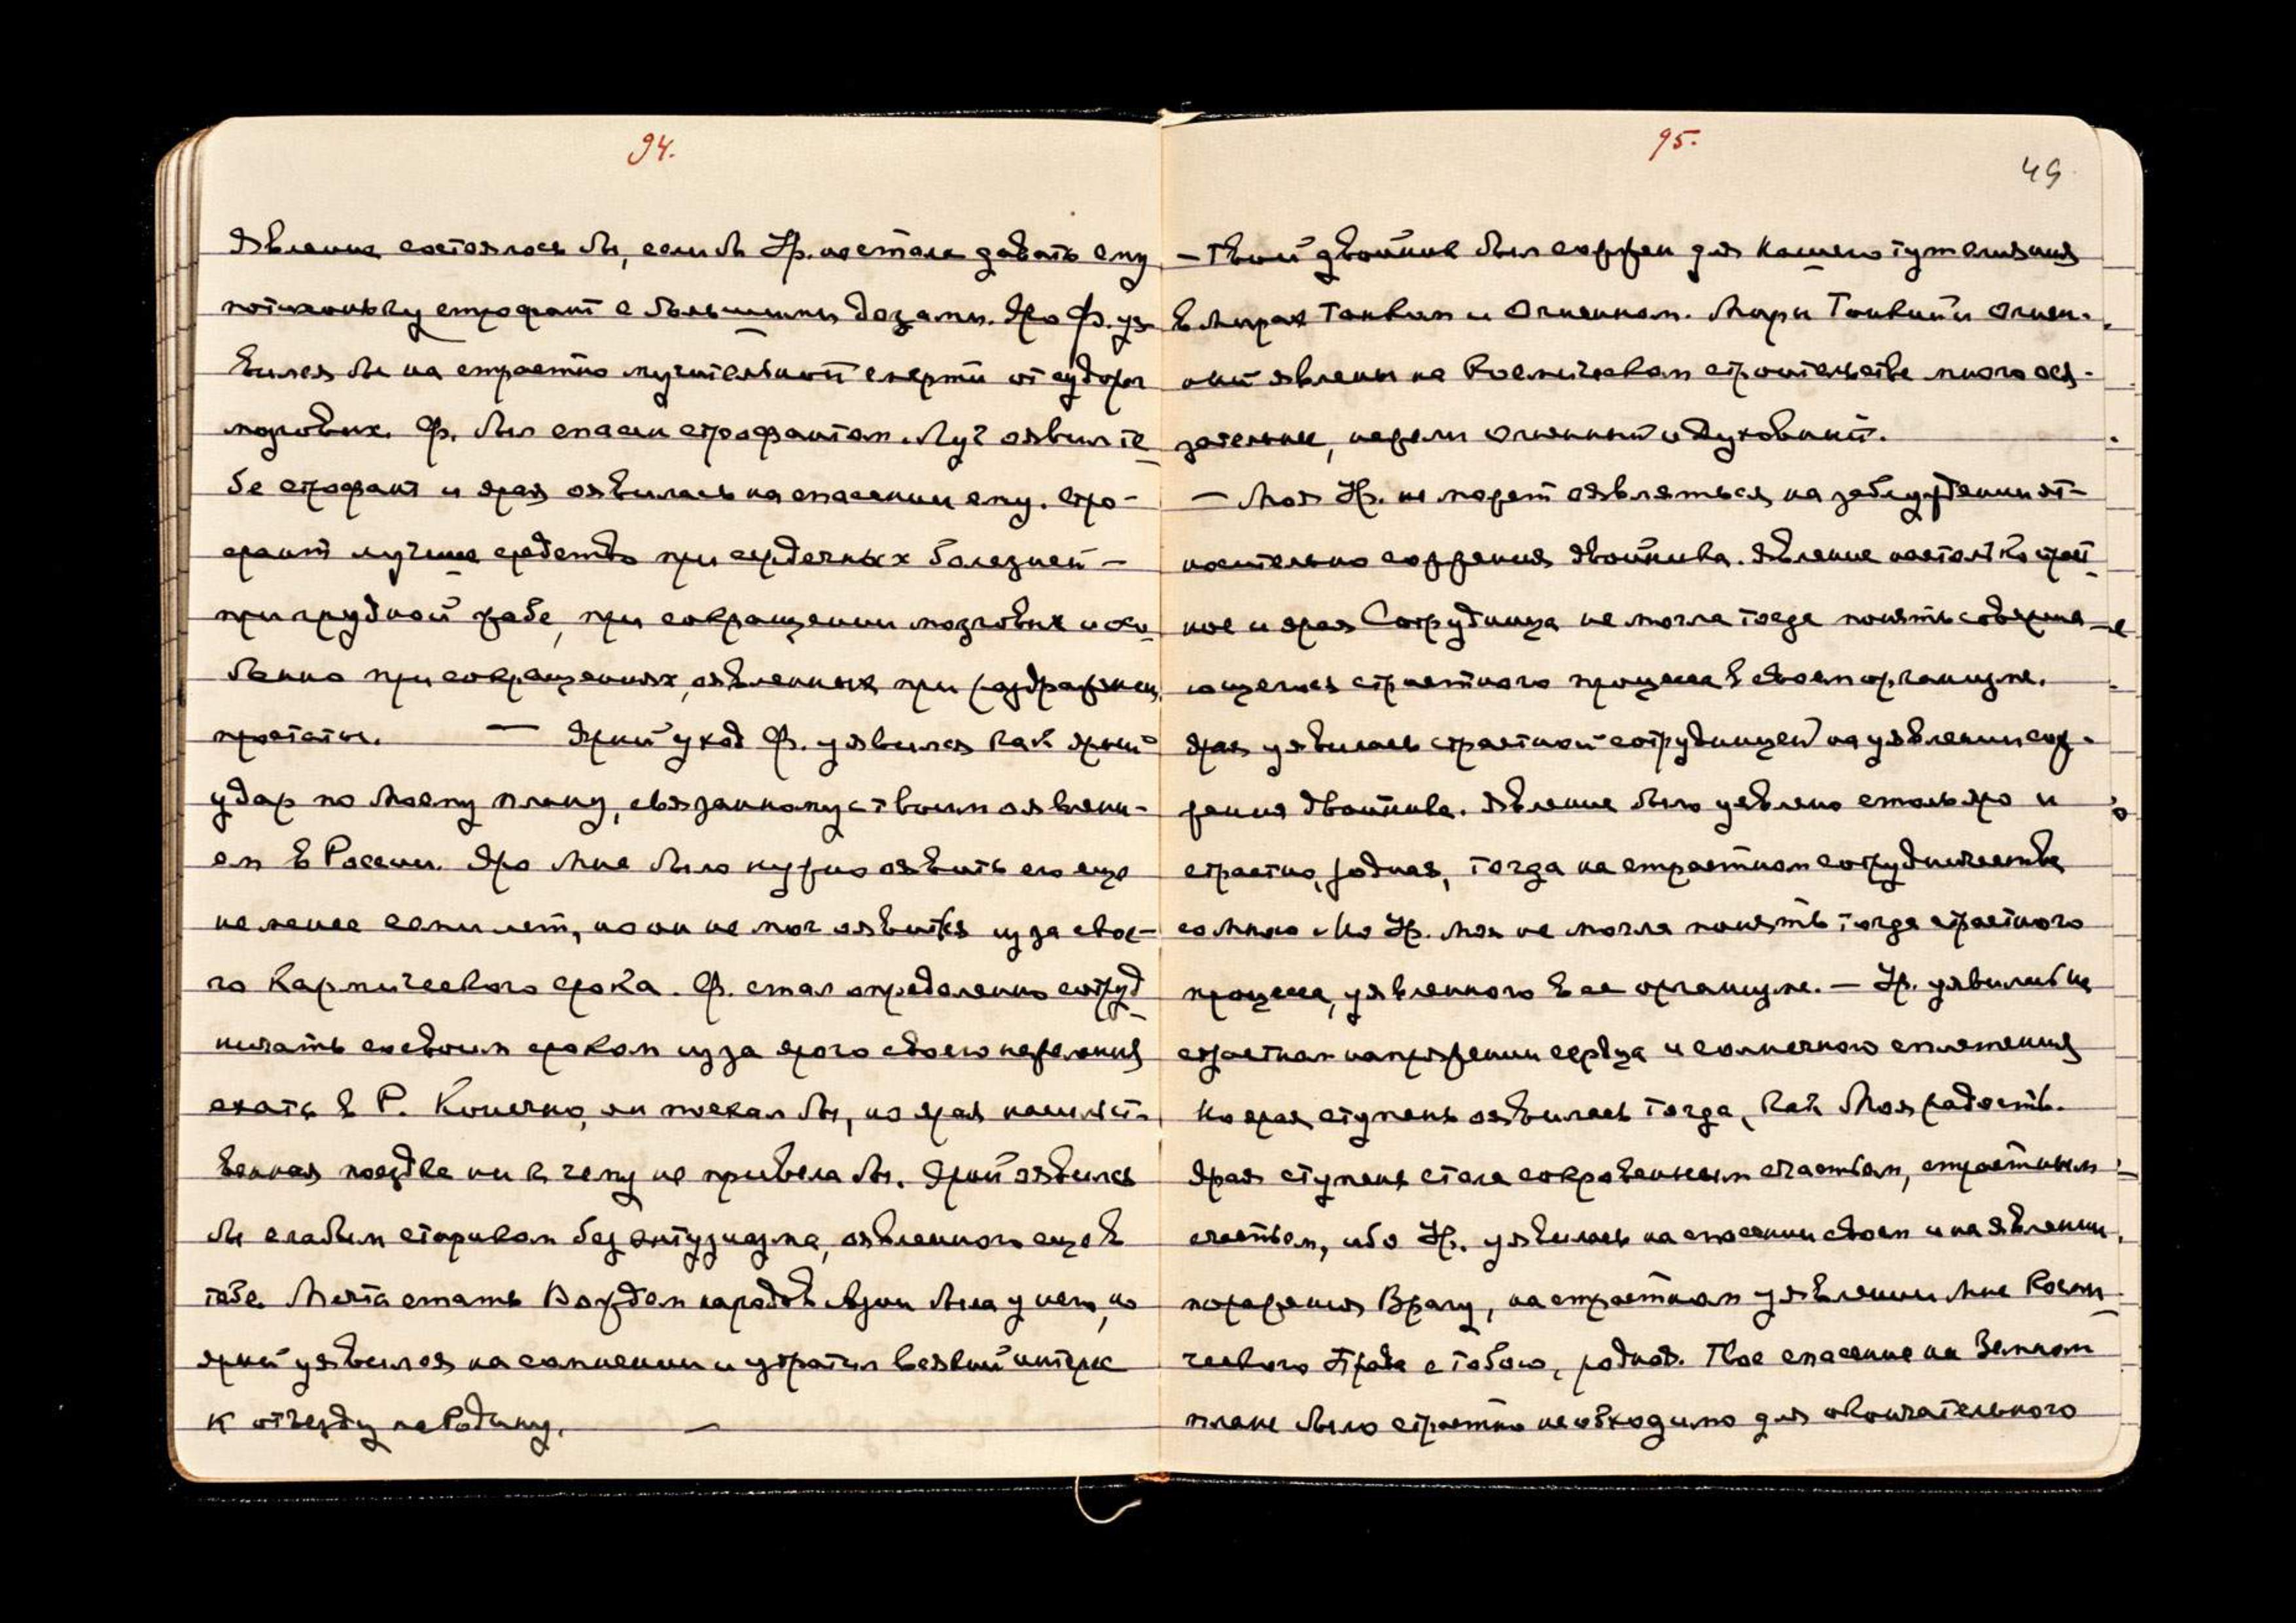 94.
Явление состоялось бы, если б Ур. не стала давать ему
потихоньку строфант с большими дозами. Яро Ф. уя-
вился бы на страстно мучительной смерти от судорог
мозговых. Ф. был спасен строфантом. Луч оявил те-
бе строфант и ярая оявилась на спасении ему. Стро-
фант лучшее средство при сердечных болезней —
при грудной жабе, при сокращении мозговых и осо-
бенно при сокращениях, оявленных при раздражении
простаты. — Ярый уход Ф. уявился как ярый
удар по Моему плану, связанному с твоим оявлени-
ем в России. Яро Мне было нужно оявить его еще
не менее семи лет, но он не мог оявиться из за свое-
го кармического срока. Ф. стал определенно сотруд-
ничать со своим сроком из за ярого своего нежелания
ехать в Р. Конечно, он поехал бы, но ярая насильст-
венная поездка ни к чему не привела бы. Ярый оявился
бы слабым стариком без энтузиазма, оявленного еще в
тебе. Мечта стать Вождем народов Азии была у него, но
ярый уявился на сомнении и утратил всякий интерес
к отъезду на Родину. —
95.
49
— Твой двойник был сожжен для Нашего утончения
в Мирах Тонком и Огненном. Миры Тонкий и Огнен-
ный явлены на Космическом строительстве много ося-
зательнее, нежели Огненный и Духовный.
— Моя Ур. не может оявляться на заблуждении от-
носительно сожжения двойника. Явление настолько страст-
ное и ярая Сотрудница не могла тогда понять соверша-
ющегося страстного процесса в своем организме.
Ярая уявилась страстной сотрудницей на уявлении сож-
жения двойника. Явление было уявлено столь яро и
страстно, родная, тогда на страстном сотрудничестве
со Мною. Но Ур. Моя не могла понять тогда страстного
процесса, уявленного в ее организме. — Ур. уявилась на
страстном напряжении сердца и солнечного сплетения
Но ярая ступень оявилась тогда, как Моя радость.
Ярая ступень стала сокровенным счастьем, страстным
счастьем, ибо Ур. уявилась на спасении своем и на явлении
поражения Врагу, на страстном уявлении Мне Косми-
ческого Права с тобою, родной. Твое спасение на Земном
плане было страстно необходимо для окончательного